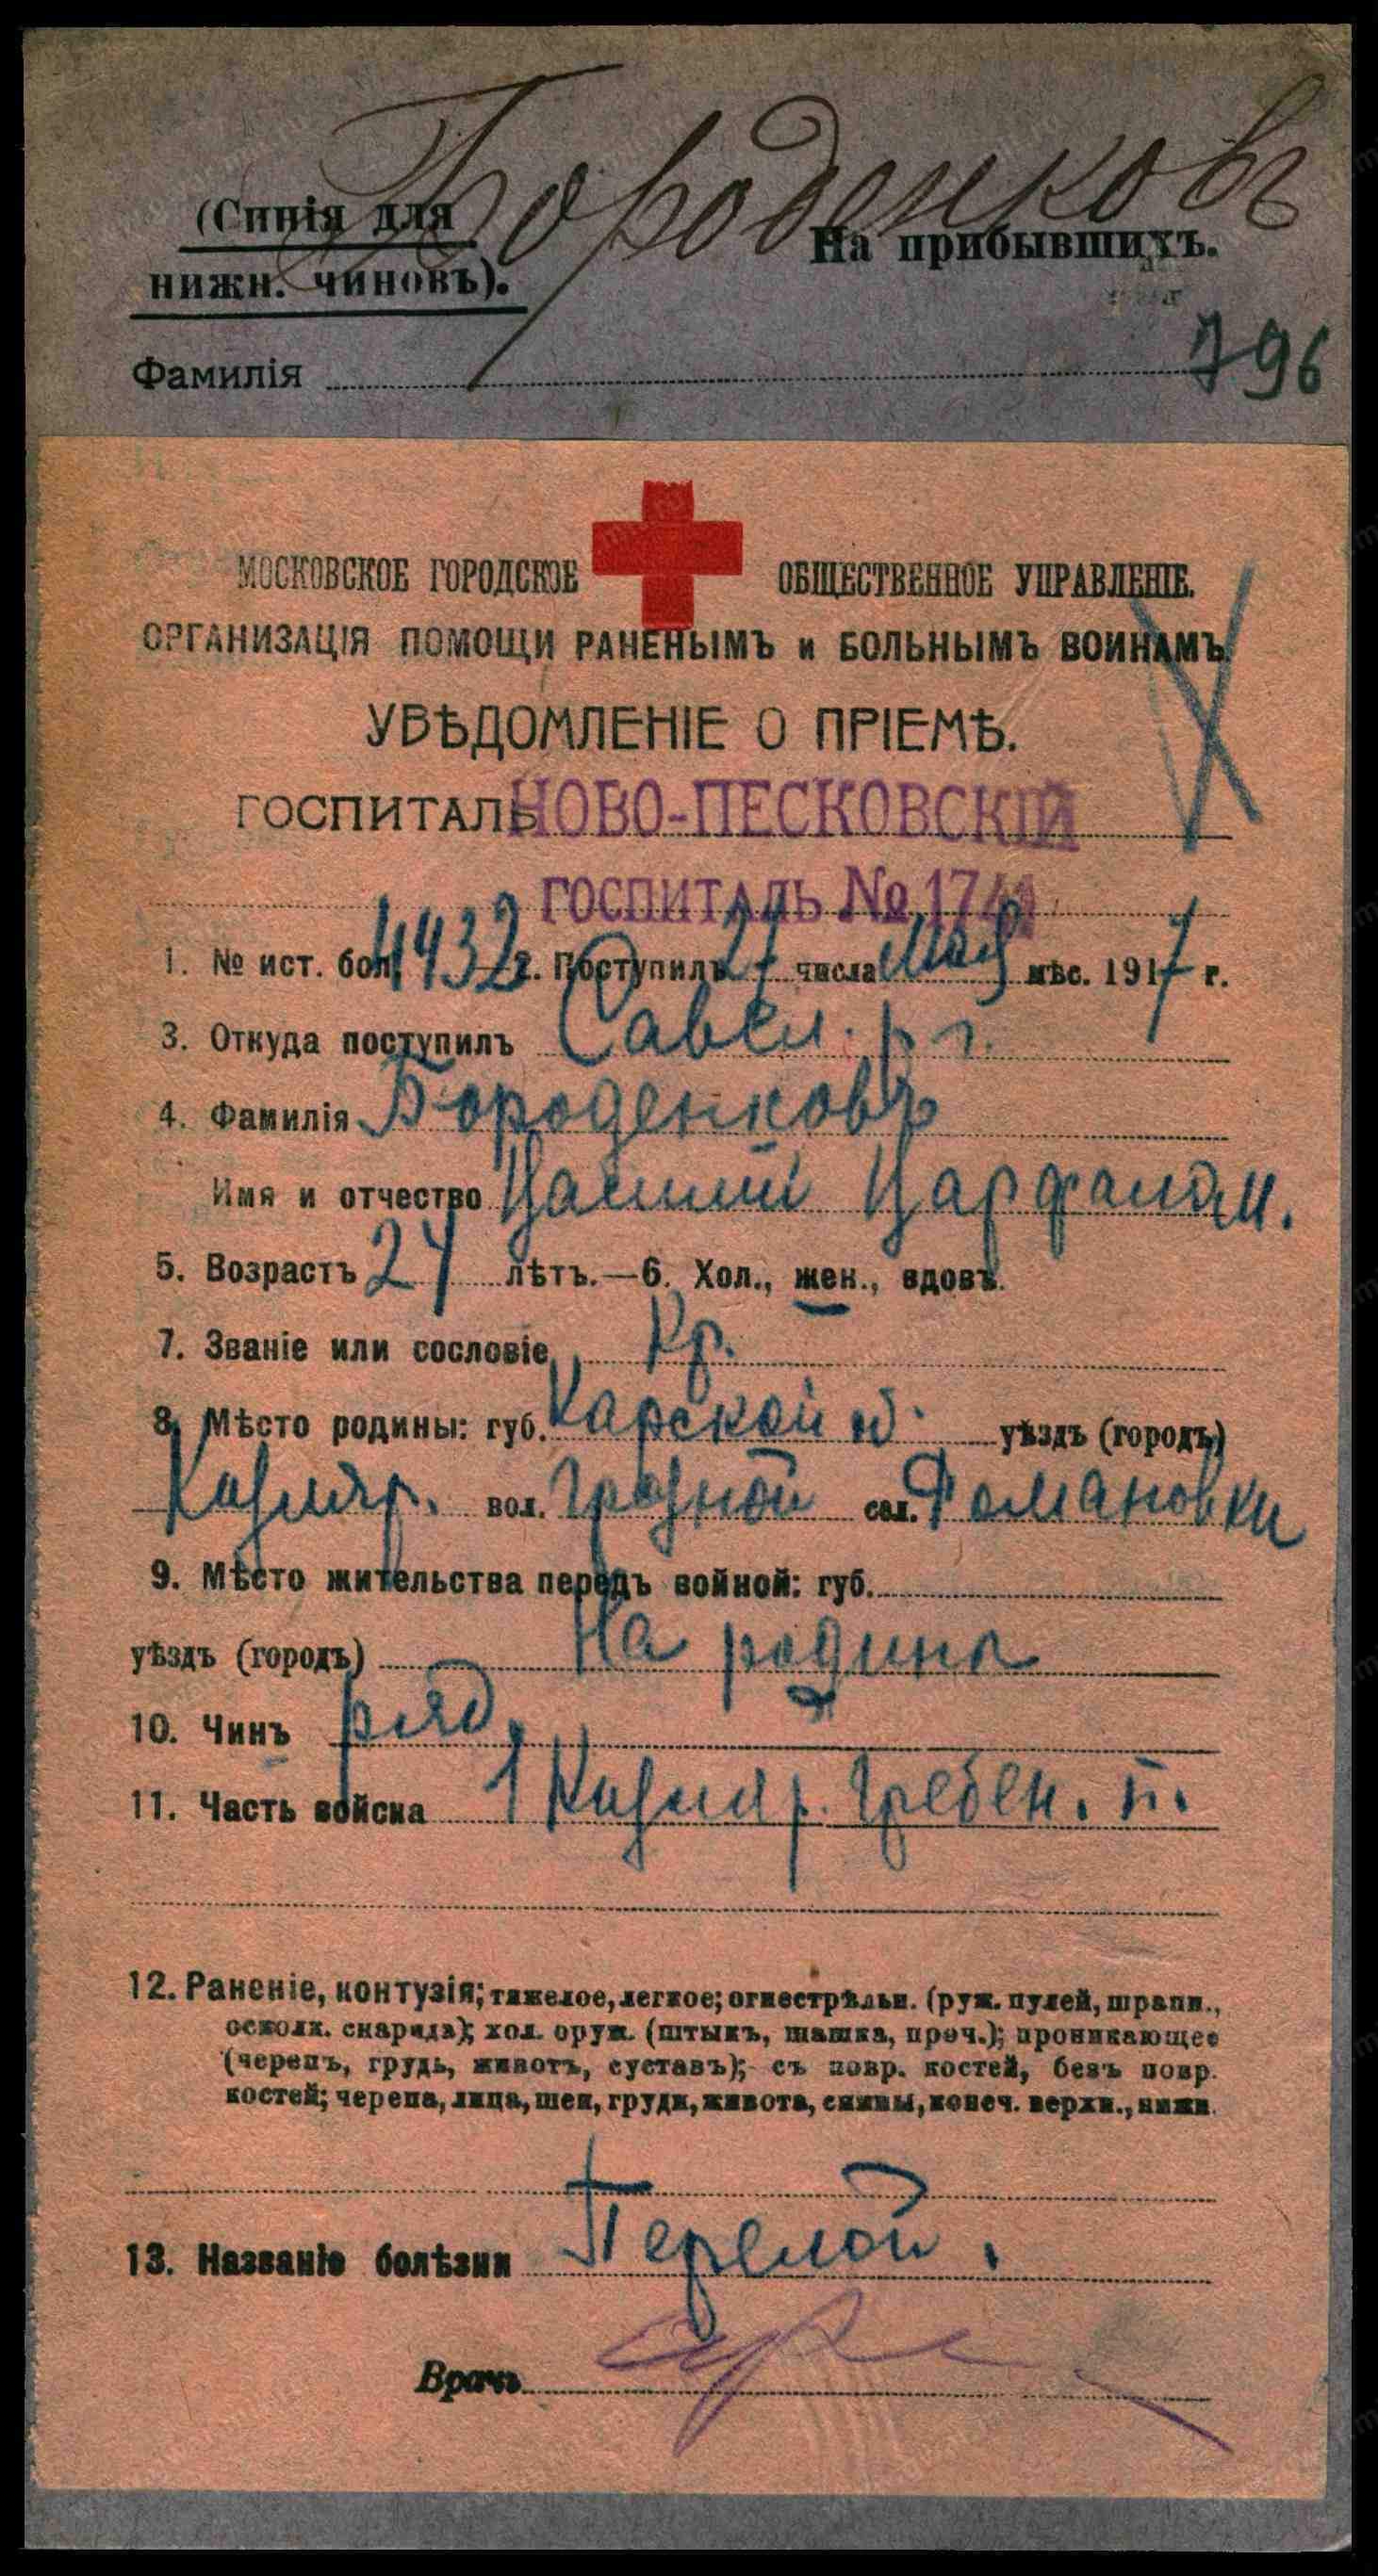 Бороденковъ
(Синія для
нижн. чиновъ).
На прибывшихъ.
Фамилія 796
МОСКОВСКОЕ ГОРОДСКОЕ ОБЩЕСТВЕННОЕ УПРАВЛЕНІЕ.
ОРГАНИЗАЦІЯ ПОМОЩИ РАНЕНЫМЪ и БОЛЬНЫМЪ ВОИНАМЪ.
УВѢДОМЛЕНІЕ О ПРІЕМѢ.
ГОСПИТАЛЬ НОВО-ПЕСКОВСКІЙ
ГОСПИТАЛЬ № 1741
1. № ист. бол. 4432 — 2. Поступилъ 27 числа Мая мѣс. 1917 г.
3. Откуда поступилъ Савел. р. г.
4. Фамилія Бороденковъ
Имя и отчество
5. Возрастъ 24 лѣтъ.—6. Хол., жен., вдовъ.
7. Званіе или сословіе Кр.
8. Мѣсто родины: губ. Карской о. уѣздъ (городъ)
вол. Грозной сел. Романовки
9. Мѣсто жительства передъ войной: губ.
уѣздъ (городъ) На родинѣ
10. Чинъ ряд.
11. Часть войска 1 Кизляр. Гребен. п.
12. Раненіе, контузія; тяжелое, легкое; огнестрѣльн. (руж. пулей, шрапн.,
осколк. снаряда); хол. оруж. (штыкъ, шашка, проч.); проникающее
(черепъ, грудь, животъ, суставъ); съ повр. костей, безъ повр.
костей; черепа, лица, шеи, груди, живота, спины, конеч. верхн., нижн.
13. Названіе болѣзни Перелой.
Врачъ